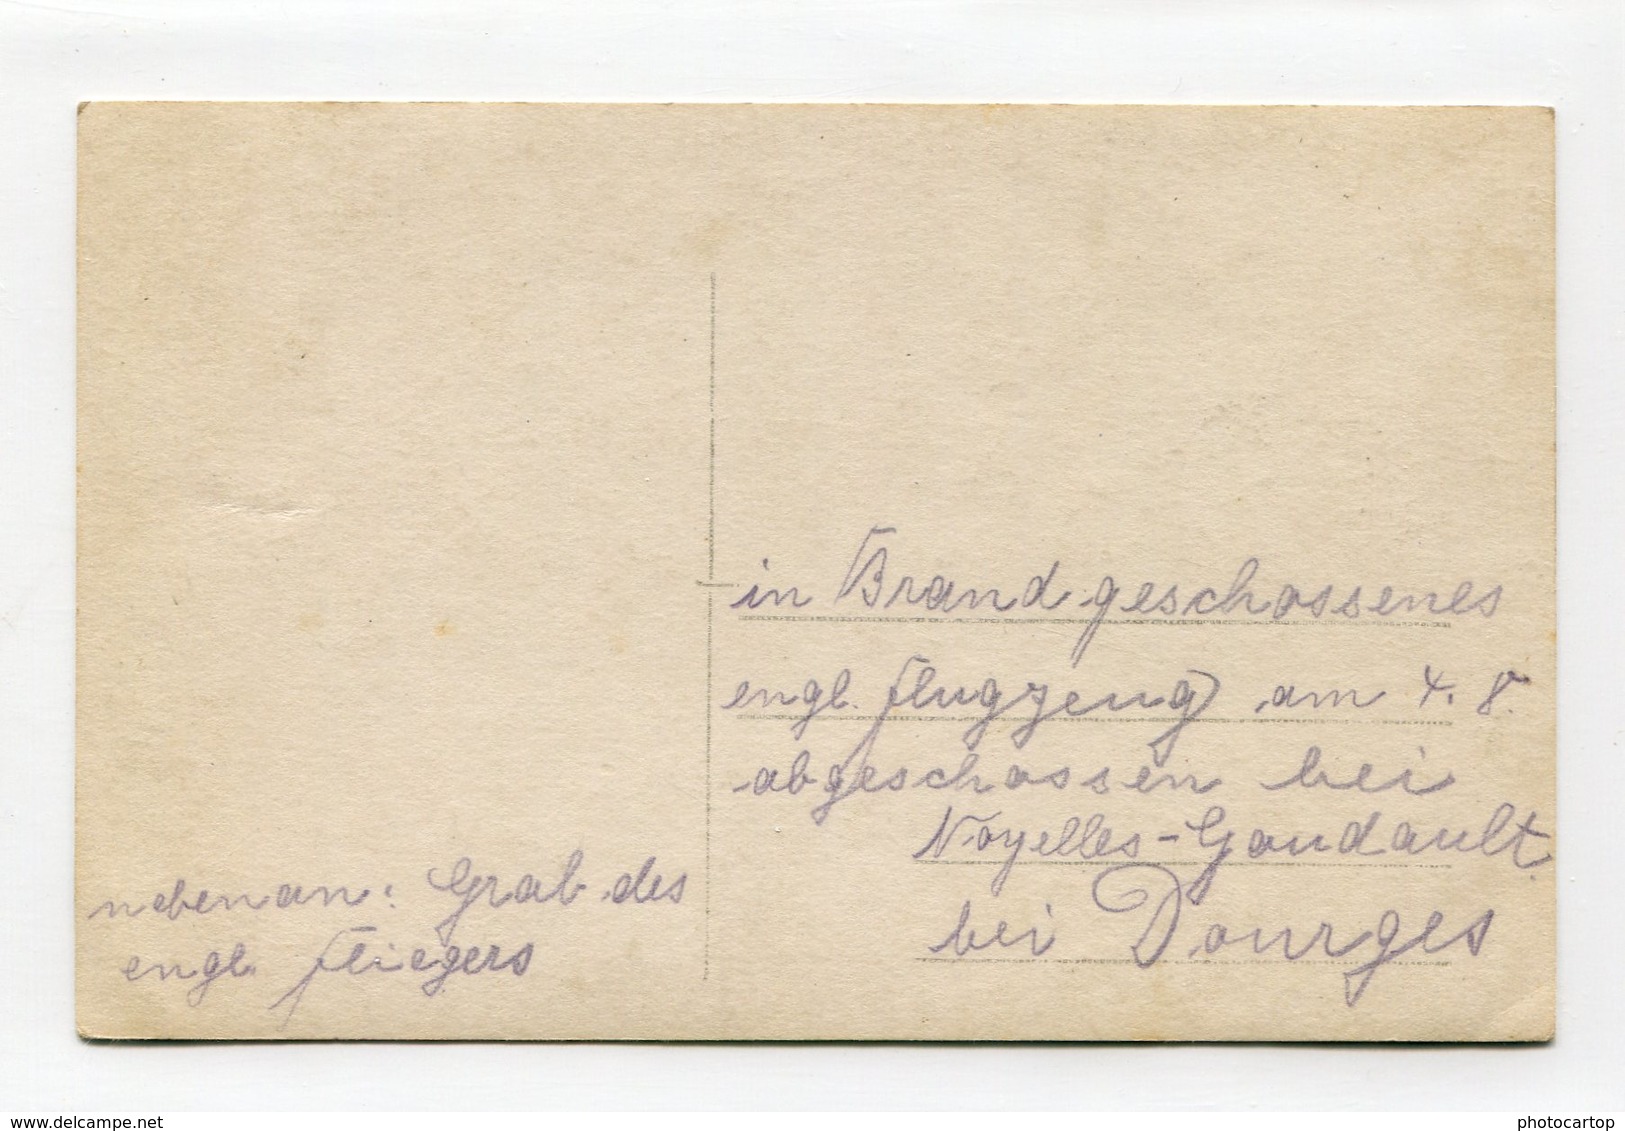 in Brand geschossenes
engl. Flugzeug am 4. 8.
abgeschossen bei
Noyelles-Goudault
bei Dourges
nebenan: Grab des
engl. Fliegers
www.delcampe.net
photocartop